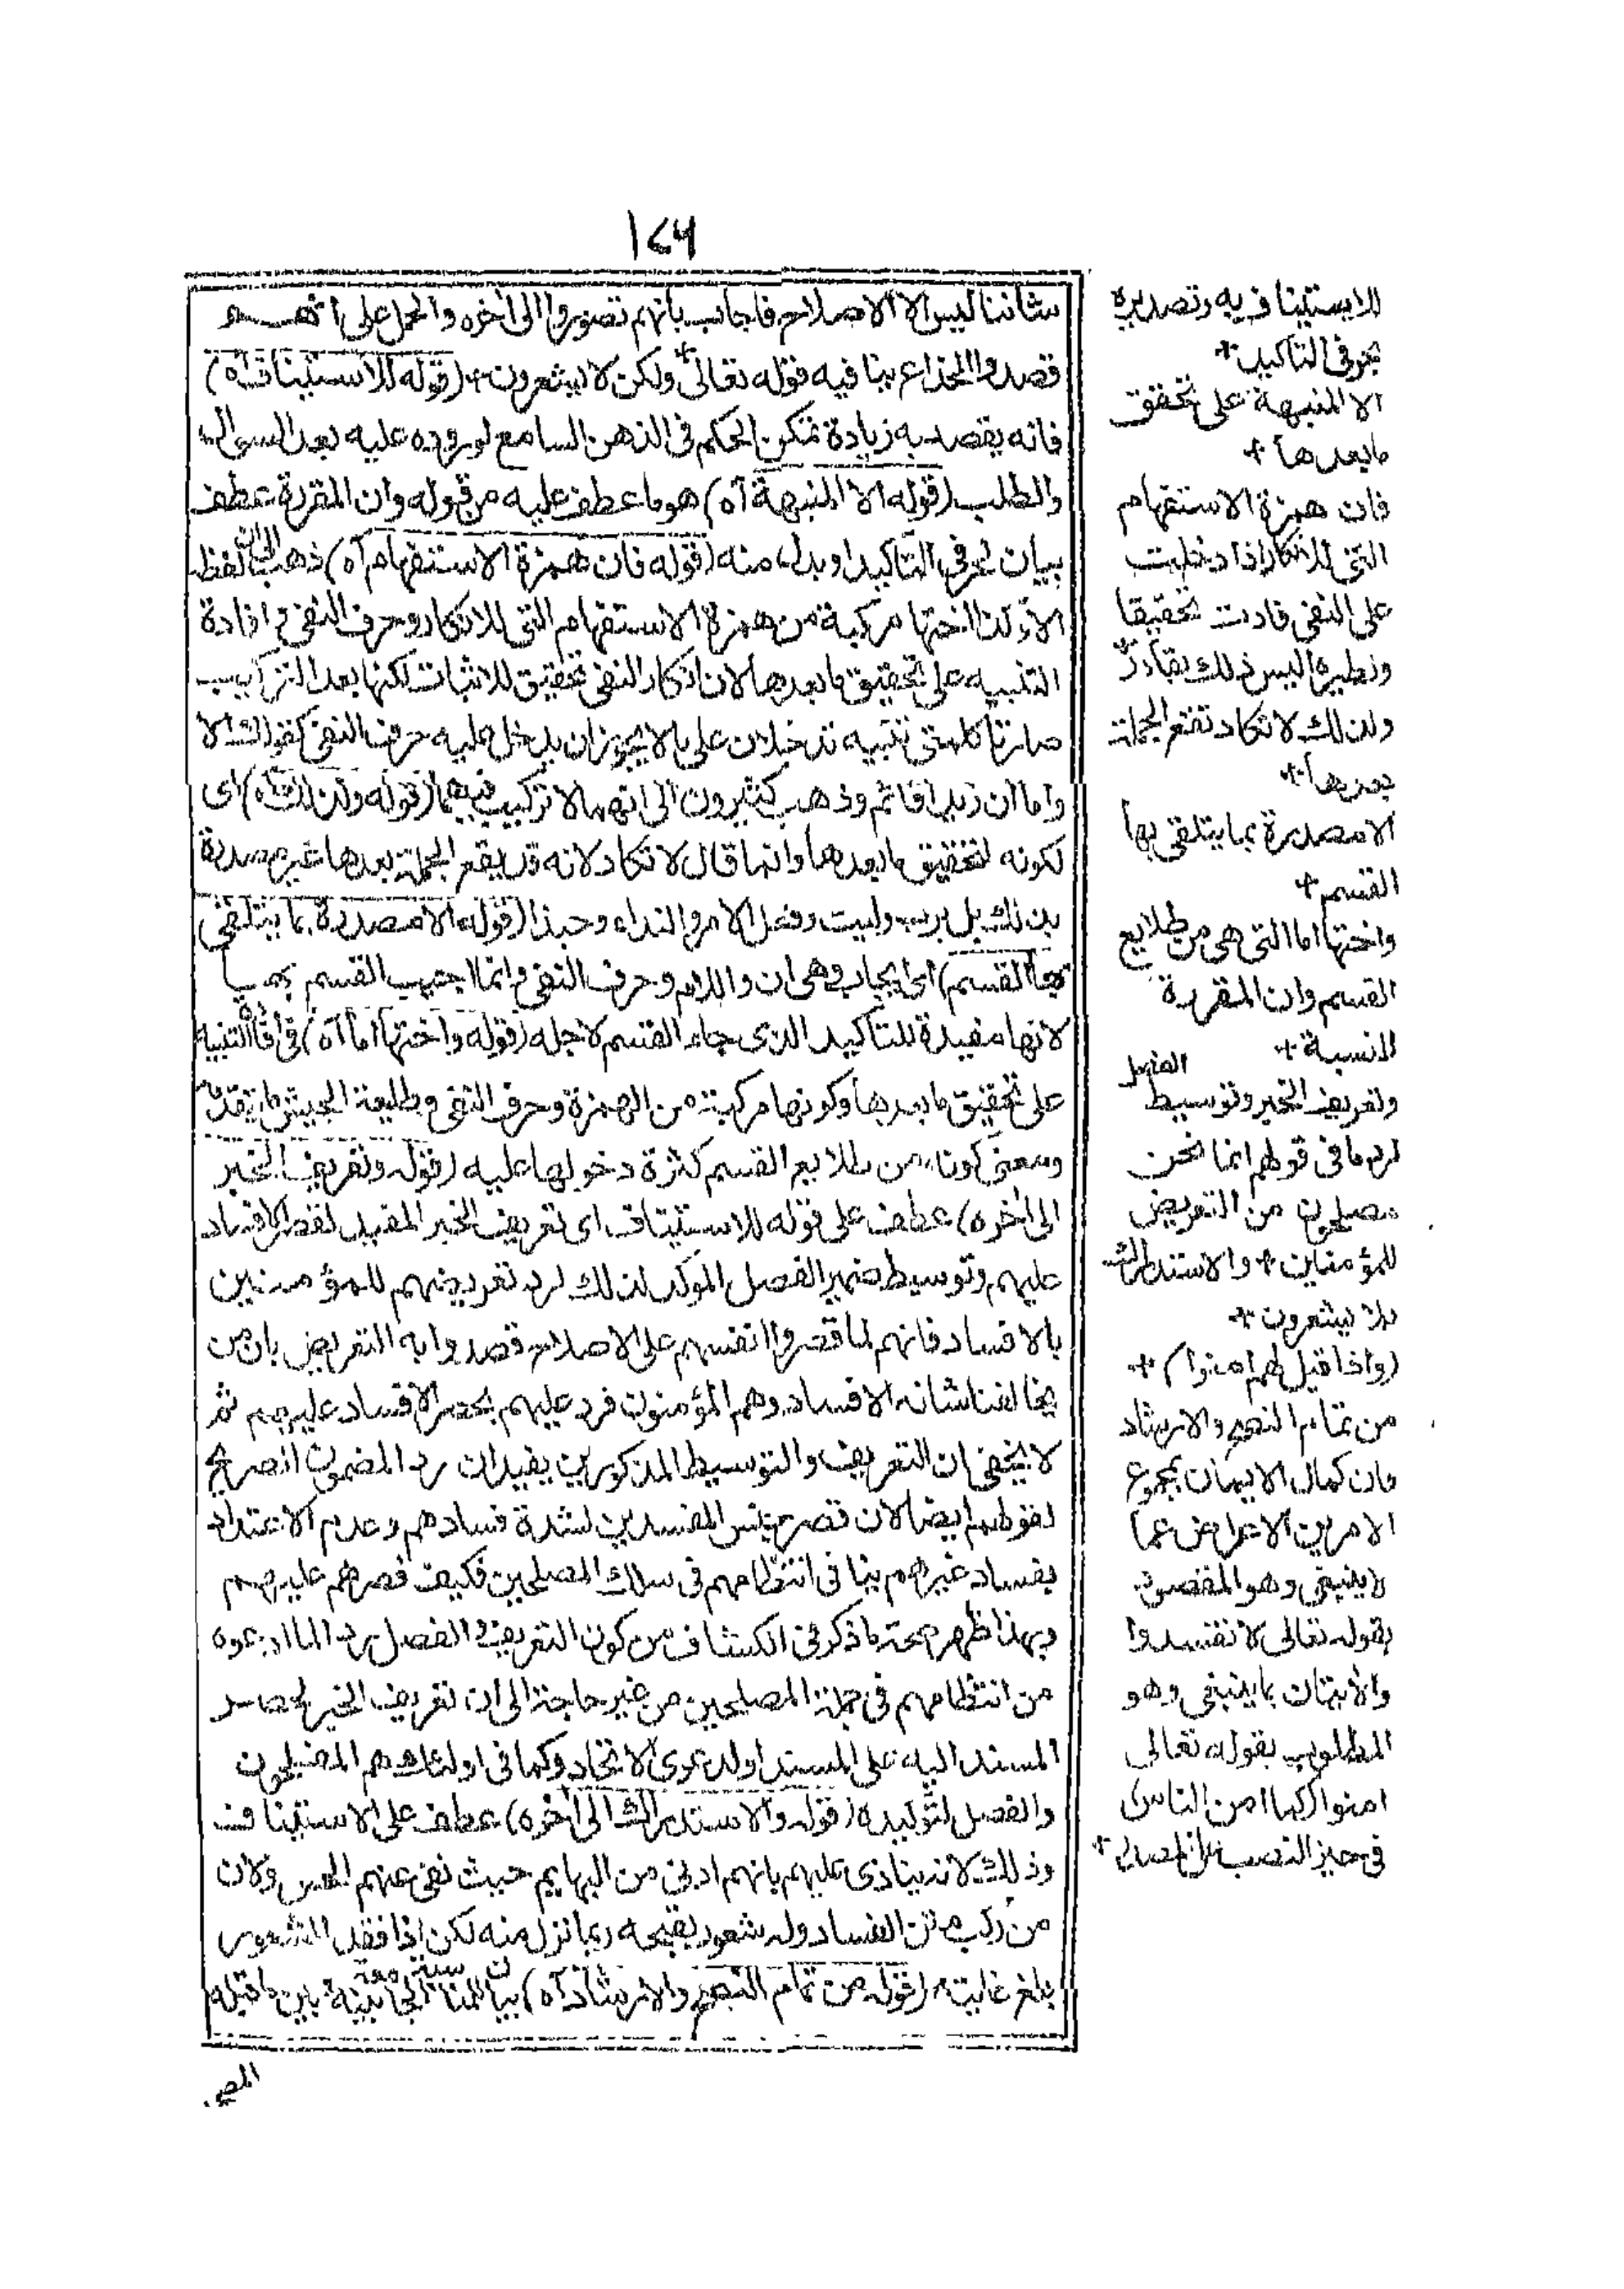 ١٤٦
شاننا ليس الا الاصلاح فاجاب بانهم تصوروا الى اخره والحمل على انهم
قصدوا الخداع ينافيه قوله تعالى ولكن لا يشعرون (قوله للاستيناف آه)
فانه يقصد به زيادة تمكن الحكم فى الذهن السامع لوروده عليه بعد السوال
والطلب (قوله الا المنبهة آه) هو وما عطف عليه من قوله وان المقررة عطف
بيان لحرفى التاكيد او بدل منه (قوله فان همزة الاستفهام آه) ذهب الى ان لفظ
الا وكذا اختها مركبة من همزة الاستفهام التى للانكار وحرف النفى لافادة
التنبيه على تحقيق ما بعدها لان انكار النفى تحقيق للاثبات لكنها بعد التركيب
صارتا كلمتى تنبيه تدخلان على ما لا يجوز ان يدخل عليه حرف النفى كقولك الا
واما ان زيدا قائم وذهب كثيرون الى انهما لا تركيب فيهما (قوله ولذلك آه) اى
لكونه لتحقيق ما بعدها وانما قال لا تكاد لانه قد يقع الجملة بعدها غير مصدرة
بذلك بل برب وليت وفعل الامر والنداء وحبذا (قوله الا مصدرة بما يتلقى
بها القسم) اى يجاب وهى ان واللام وحرف النفى وانما اجيب القسم بها
لانها مفيدة للتاكيد الذى جاء القسم لاجله (قوله واختها اما آه) فى افادة التنبيه
على تحقيق ما بعدها وكونها مركبة من الهمزة وحرف النفى وطليعة الجيش ما يتقدمه
ومعنى كونها من طلايع القسم كثرة دخولها عليه (قوله وتعريف الخبر
الى اخره) عطف على قوله للاستيناف اى تعريف الخبر المفيد لقصر الافساد
عليهم وتوسيط ضمير الفصل الموكد لذلك لرد تعريضهم للمؤمنين
بالافساد فانهم لما قصروا انفسهم على الاصلاح قصدوا به التعريض بان من
يخالفنا شانه الافساد وهم المؤمنون فرد عليهم بحصر الافساد عليهم ثم
لا يخفى ان التعريف والتوسيط المذكورين يفيدان رد المضمون الصريح
لقولهم ايضا لان قصر جنس المفسدين لشدة فسادهم وعدم الاعتداد
بفساد غيرهم ينافى انتظامهم فى سلك المصلحين فكيف قصرهم عليهم
وبهذا ظهر صحة ما ذكر فى الكشاف من كون التعريف والفصل رد لما ادعوه
من انتظامهم فى جملة المصلحين من غير حاجة الى ان تعريف الخبر لحصر
المسند اليه على المسند او لدعوى الاتحاد وكما فى اولئك هم المفلحون
والفصل لتوكيده (قوله والاستدراك الى اخره) عطف على الاستيناف
وذلك لانه ينادى عليهم بانهم ادنى من البهايم حيث نفى عنهم الحس ولان
من ركب متن الفساد وله شعور بقبحه ربما نزل منه لكن اذا فقد الشعور
بلغ غايته (قوله من تمام النصح والارشاد آه) بيان لمناسبة بينه وبين ما قبله
للاستيناف به وتصديره
بحرفى التاكيد
الا المنبهة على تحقق
ما بعدها
فان همزة الاستفهام
التى للانكار اذا دخلت
على النفى فادت تحقيقا
ونظيره اليس ذلك بقادر
ولذلك لا تكاد تقع الجملة
بعدها
الا مصدرة بما يتلقى بها
القسم
واختها اما التى هى من طلايع
القسم وان المقررة
للنسبة
وتعريف الخبر وتوسيط الفصل
لرد ما فى قولهم انما نحن
مصلحون من التعريض
للمؤمنين والاستدراك
بلا يشعرون
(واذا قيل لهم امنوا)
من تمام النصح والارشاد
فان كمال الايمان بمجموع
الامرين الاعراض عما
لا ينبغى وهو المقصود
بقوله تعالى لا تفسدوا
والاتيان بما ينبغى وهو
المطلوب بقوله تعالى
امنوا (كما امن الناس
فى حيز النصب على المصدر
المصر